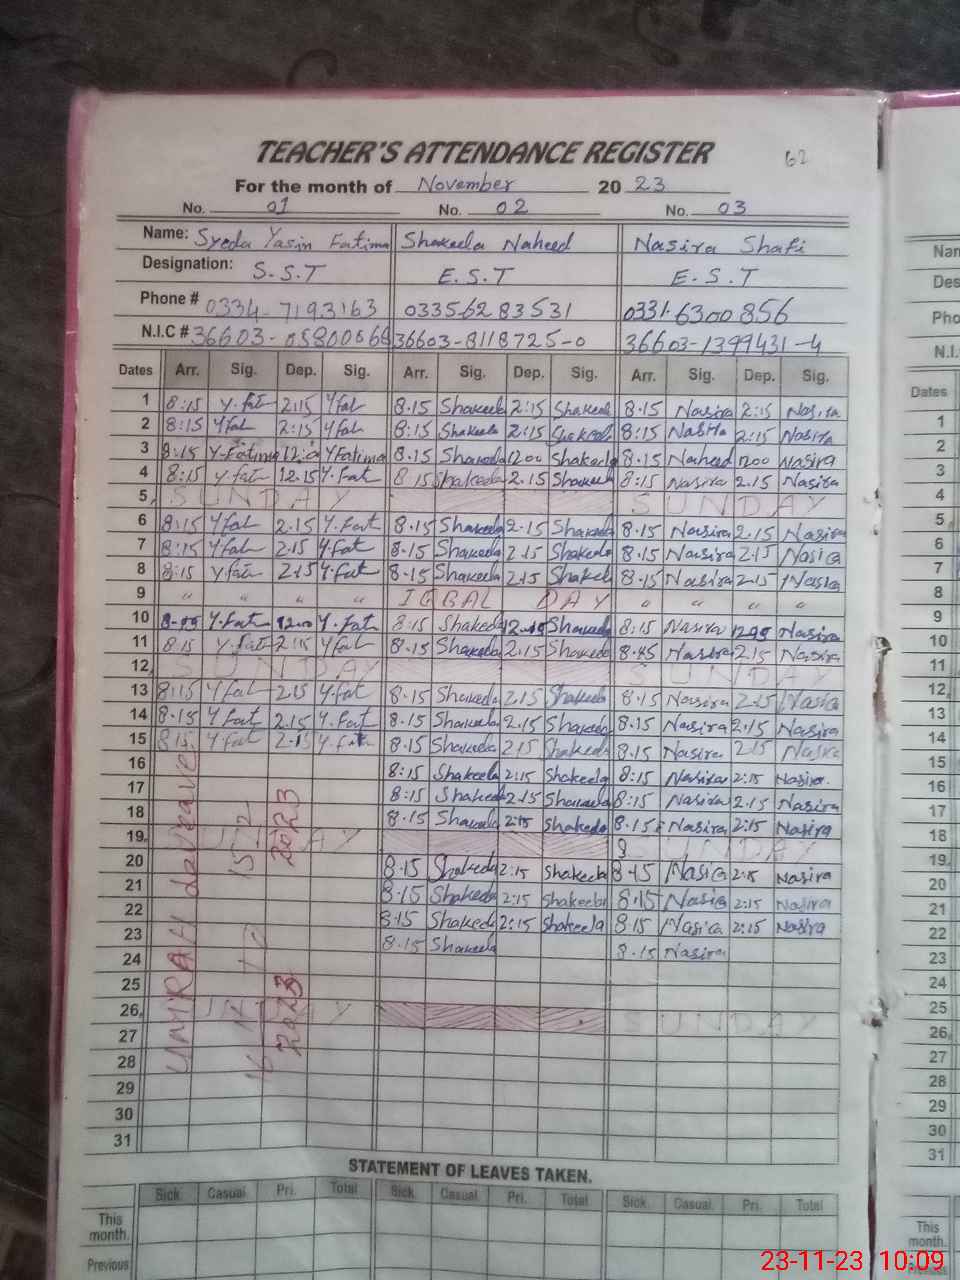 TEACHER'S ATTENDANCE REGISTER 62
For the month of November 20 23
No. 01 No. 02 No. 03
Name: Syeda Yasin Fatima Shakeela Naheed Nasira Shafi
Designation: S.S.T E.S.T E.S.T
Phone # 0334-7193163 0335-6283531 0331-6300856
N.I.C # 36603-0580056 36603-8118725-0 36603-1399431-4
Dates Arr. Sig. Dep. Sig. Arr. Sig. Dep. Sig. Arr. Sig. Dep. Sig.
1 8:15 Y.fat 2:15 Yfat 8.15 Shakeela 2:15 Shakeel 8.15 Nasira 2:15 Nasira
2 8:15 Yfat 2:15 Yfat 8:15 Shakeela 2:15 Shakeel 8:15 Nasira 2:15 Nasira
3 8:15 Y.Fatima 12:0 YFatima 8.15 Shakeela 1200 Shakeela 8.15 Naheed 1200 Nasira
4 8:15 Y.fat 12.15 Y.Fat 8 15 Shakeela 2.15 Shakeel 8:15 Nasira 2.15 Nasira
5 SUNDAY SUNDAY
6 8:15 Yfat 2.15 Y.Fat 8.15 Shakeela 2.15 Shakeela 8.15 Nasira 2.15 Nasira
7 8:15 Yfat 2.15 Y.Fat 8.15 Shakeela 2.15 Shakeela 8.15 Nasira 2.15 Nasira
8 8:15 Y.fat 2.15 Y.Fat 8.15 Shakeela 2.15 Shakeel 8.15 Nasira 2.15 Nasira
9 " " " " IQBAL DAY " " " "
10 Y.Fat 12.00 Y.Fat 8:15 Shakeela Shakeela 8:15 Nasira Nasira
11 8:15 Y.fat 2:15 Yfat 8.15 Shakeela 2.15 Shakeela 8.45 Nasira 2.15 Nasira
12 SUNDAY SUNDAY
13 8:15 Yfat 2.15 Y.fat 8.15 Shakeela 2.15 Shakeela 8.15 Nasira 2.15 Nasira
14 8.15 Y Fat 2.15 Y.Fat 8.15 Shakeela 2.15 Shakeela 8.15 Nasira 2:15 Nasira
15 8:15 Y Fat 2.15 Y.fat 8.15 Shakeela 2.15 Shakeela 8.15 Nasira 2.15 Nasira
16 8:15 Shakeela 2:15 Shakeela 8:15 Nasira 2:15 Nasira
17 8:15 Shakeela 2.15 Shakeela 8:15 Nasira 2.15 Nasira
18 8.15 Shakeela 2:15 Shakeela 8.15 Nasira 2:15 Nasira
19 SUNDAY SUNDAY
20 8.15 Shakeela 2:15 Shakeela 8.15 Nasira 2:15 Nasira
21 8.15 Shakeela 2:15 Shakeela 8.15 Nasira 2:15 Nasira
22 8.15 Shakeela 2:15 Shakeela 8.15 Nasira 2:15 Nasira
23 8.15 Shakeela 8.15 Nasira
24
25
26 SUNDAY SUNDAY
27
28
29
30
31
UMRAH
2023
2023
STATEMENT OF LEAVES TAKEN.
Sick. Casual. Pri. Total Sick. Casual. Pri. Total Sick. Casual. Pri. Total
This
month.
Previous
Nam
Des
Pho
N.I.
Dates
1
2
3
4
5
6
7
8
9
10
11
12
13
14
15
16
17
18
19
20
21
22
23
24
25
26
27
28
29
30
31
This
month.
Previous
23-11-23 10:09